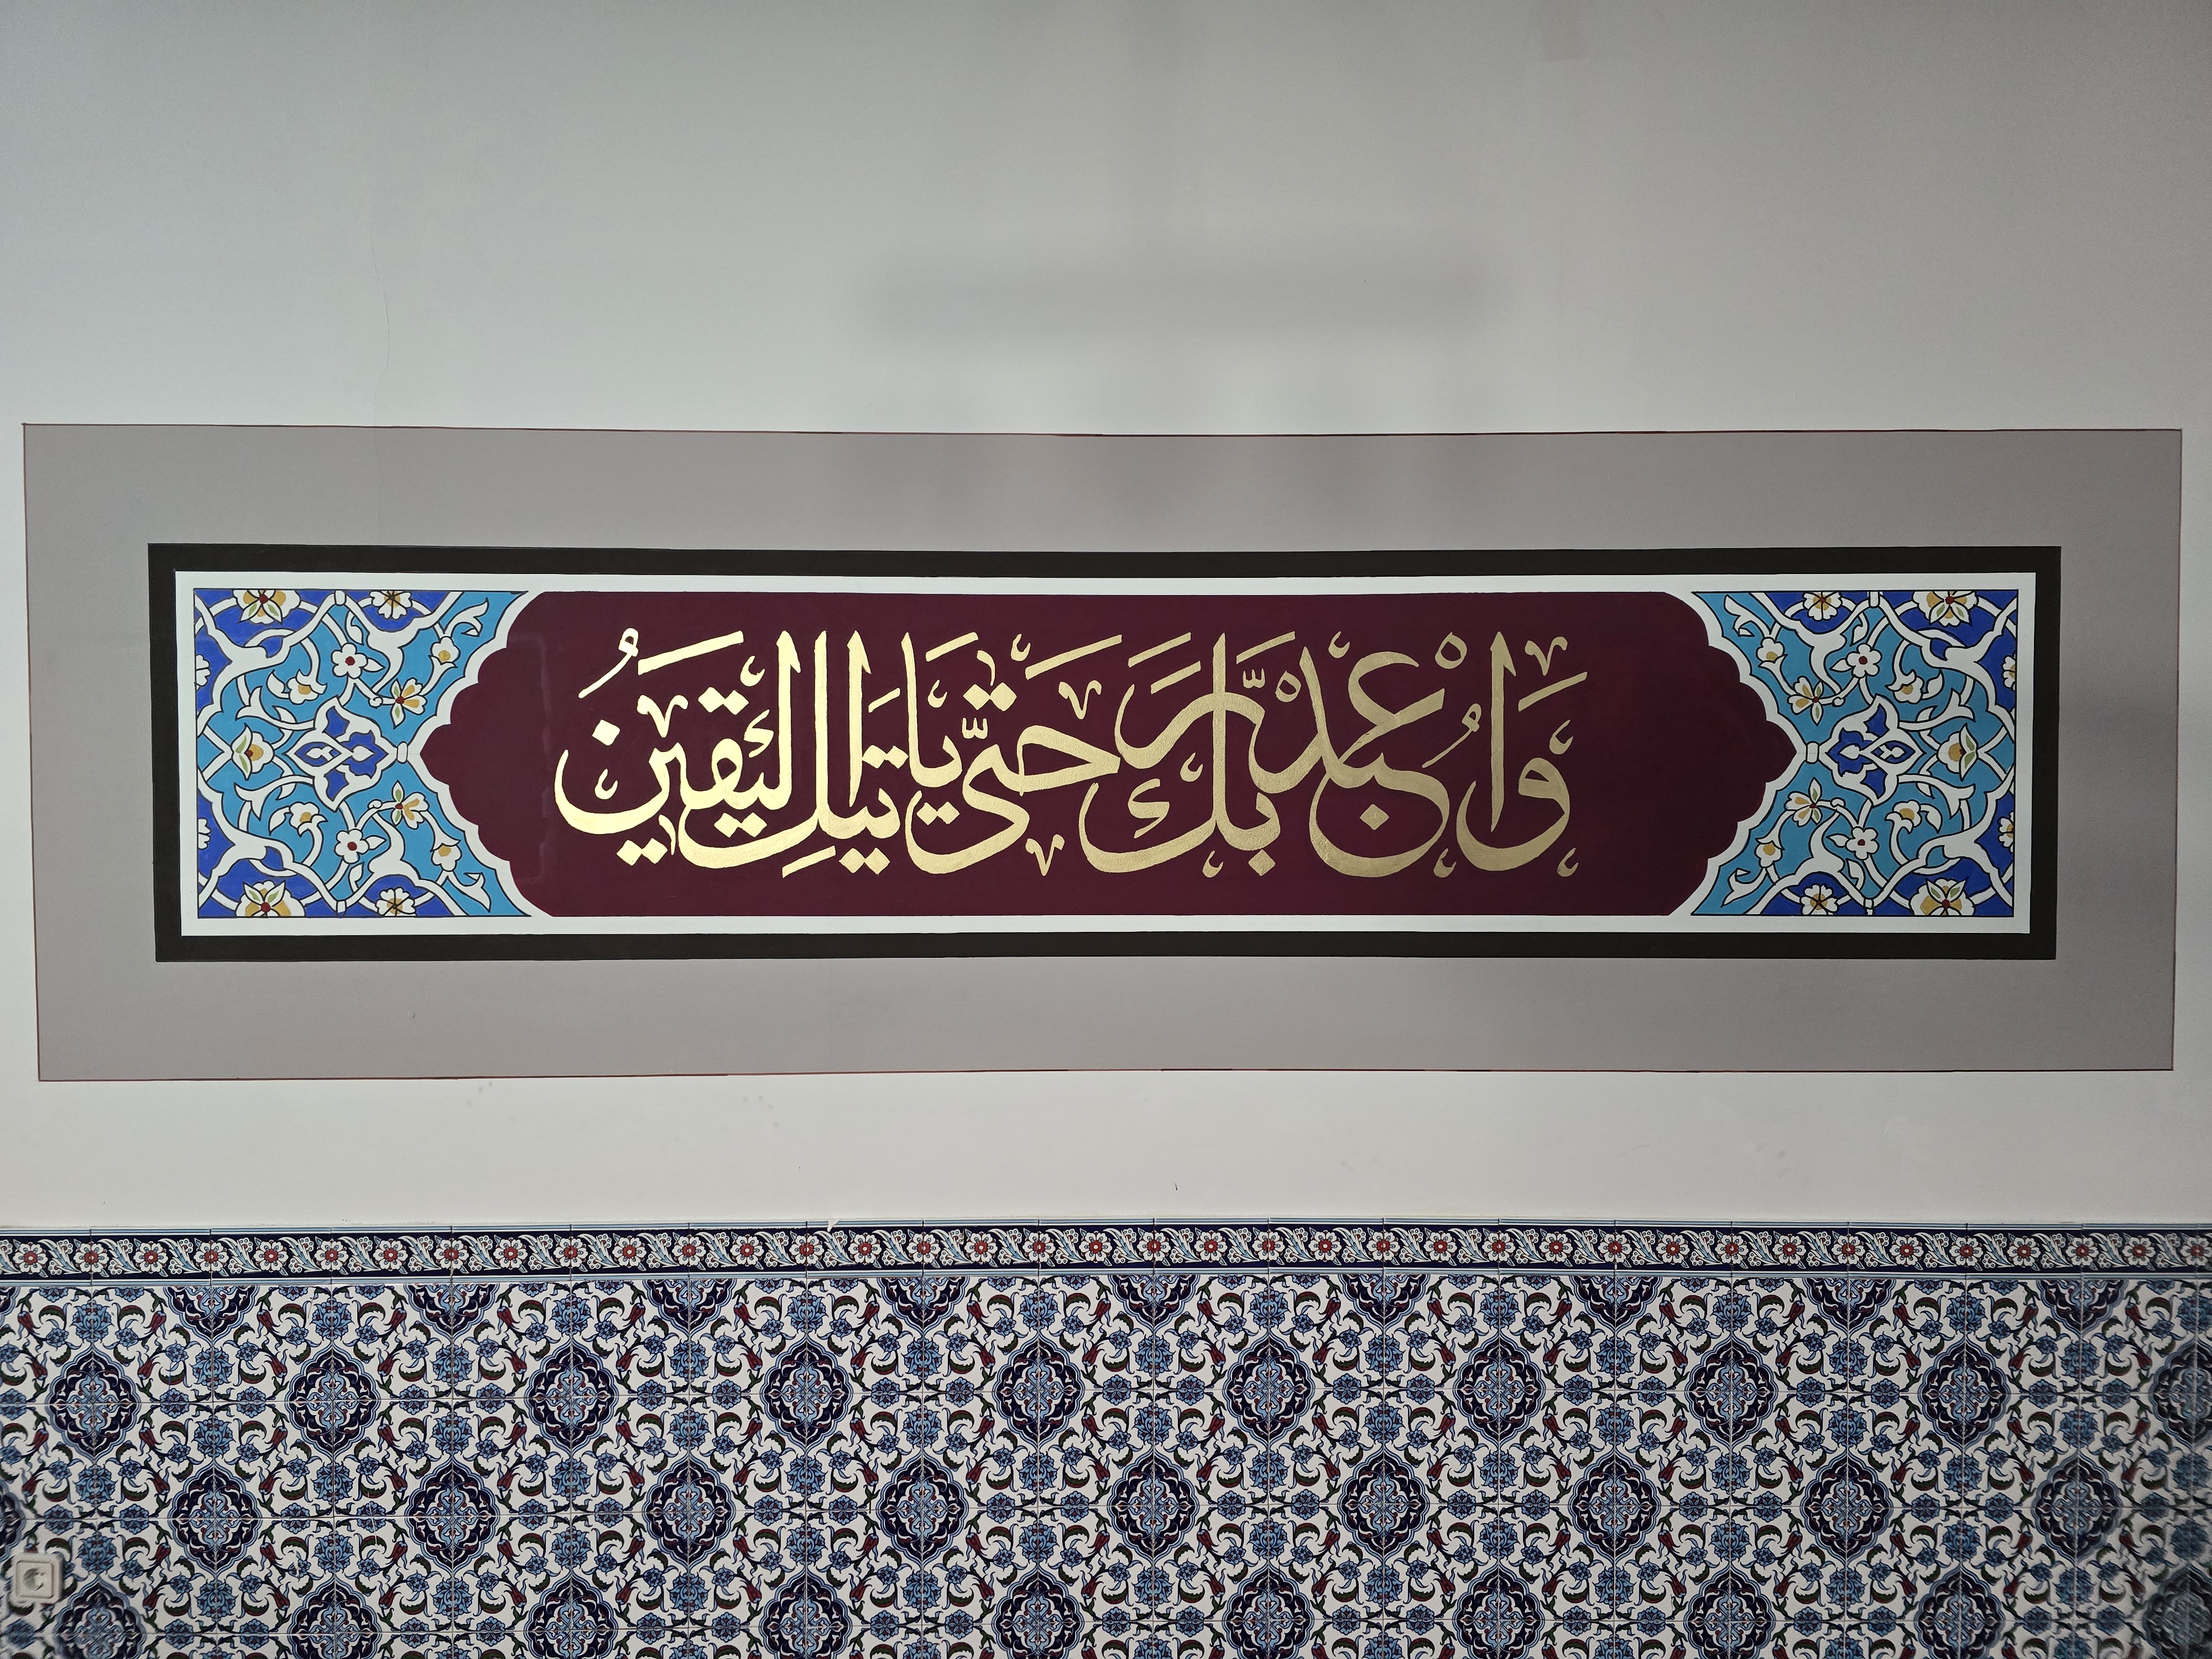 وَاعْبُدْ رَبَّكَ حَتَّى يَاتِيَكَ الْيَقِينُ